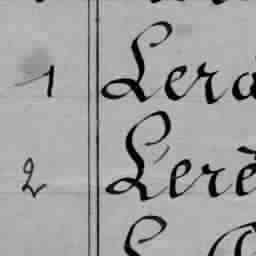 1 Lera
2 Lerè